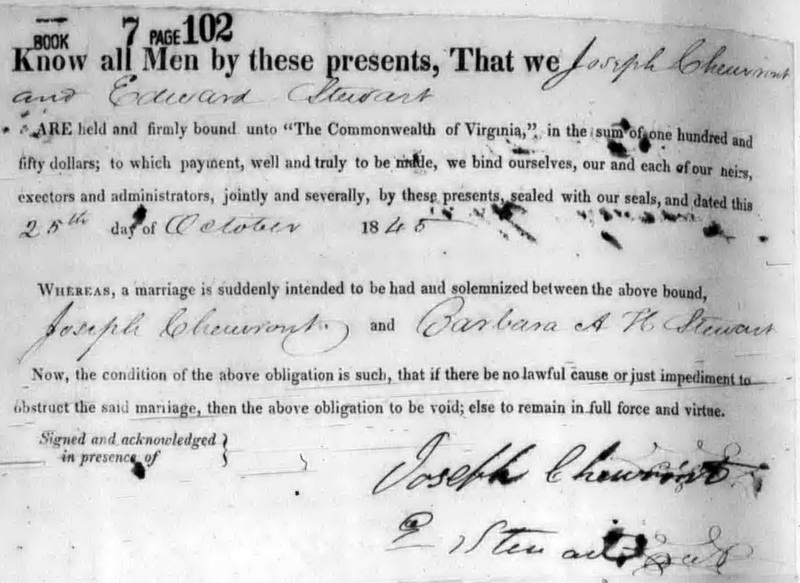 BOOK 7 PAGE 102
Know all Men by these presents, That we Joseph Cheuvront
and Edward Stewart
ARE held and firmly bound unto "The Commonwealth of Virginia,", in the sum of one hundred and
fifty dollars; to which payment, well and truly to be made, we bind ourselves, our and each of our heirs,
exectors and administrators, jointly and severally, by these presents, sealed with our seals, and dated this
25th day of October 1845
WHEREAS, a marriage is suddenly intended to be had and solemnized between the above bound,
Joseph Cheuvront and Barbara A H Stewart
Now, the condition of the above obligation is such, that if there be no lawful cause or just impediment to
obstruct the said mariiage, then the above obligation to be void; else to remain in full force and virtue.
Signed and acknowledged
in presence of
Joseph Cheuvront
E Stewart